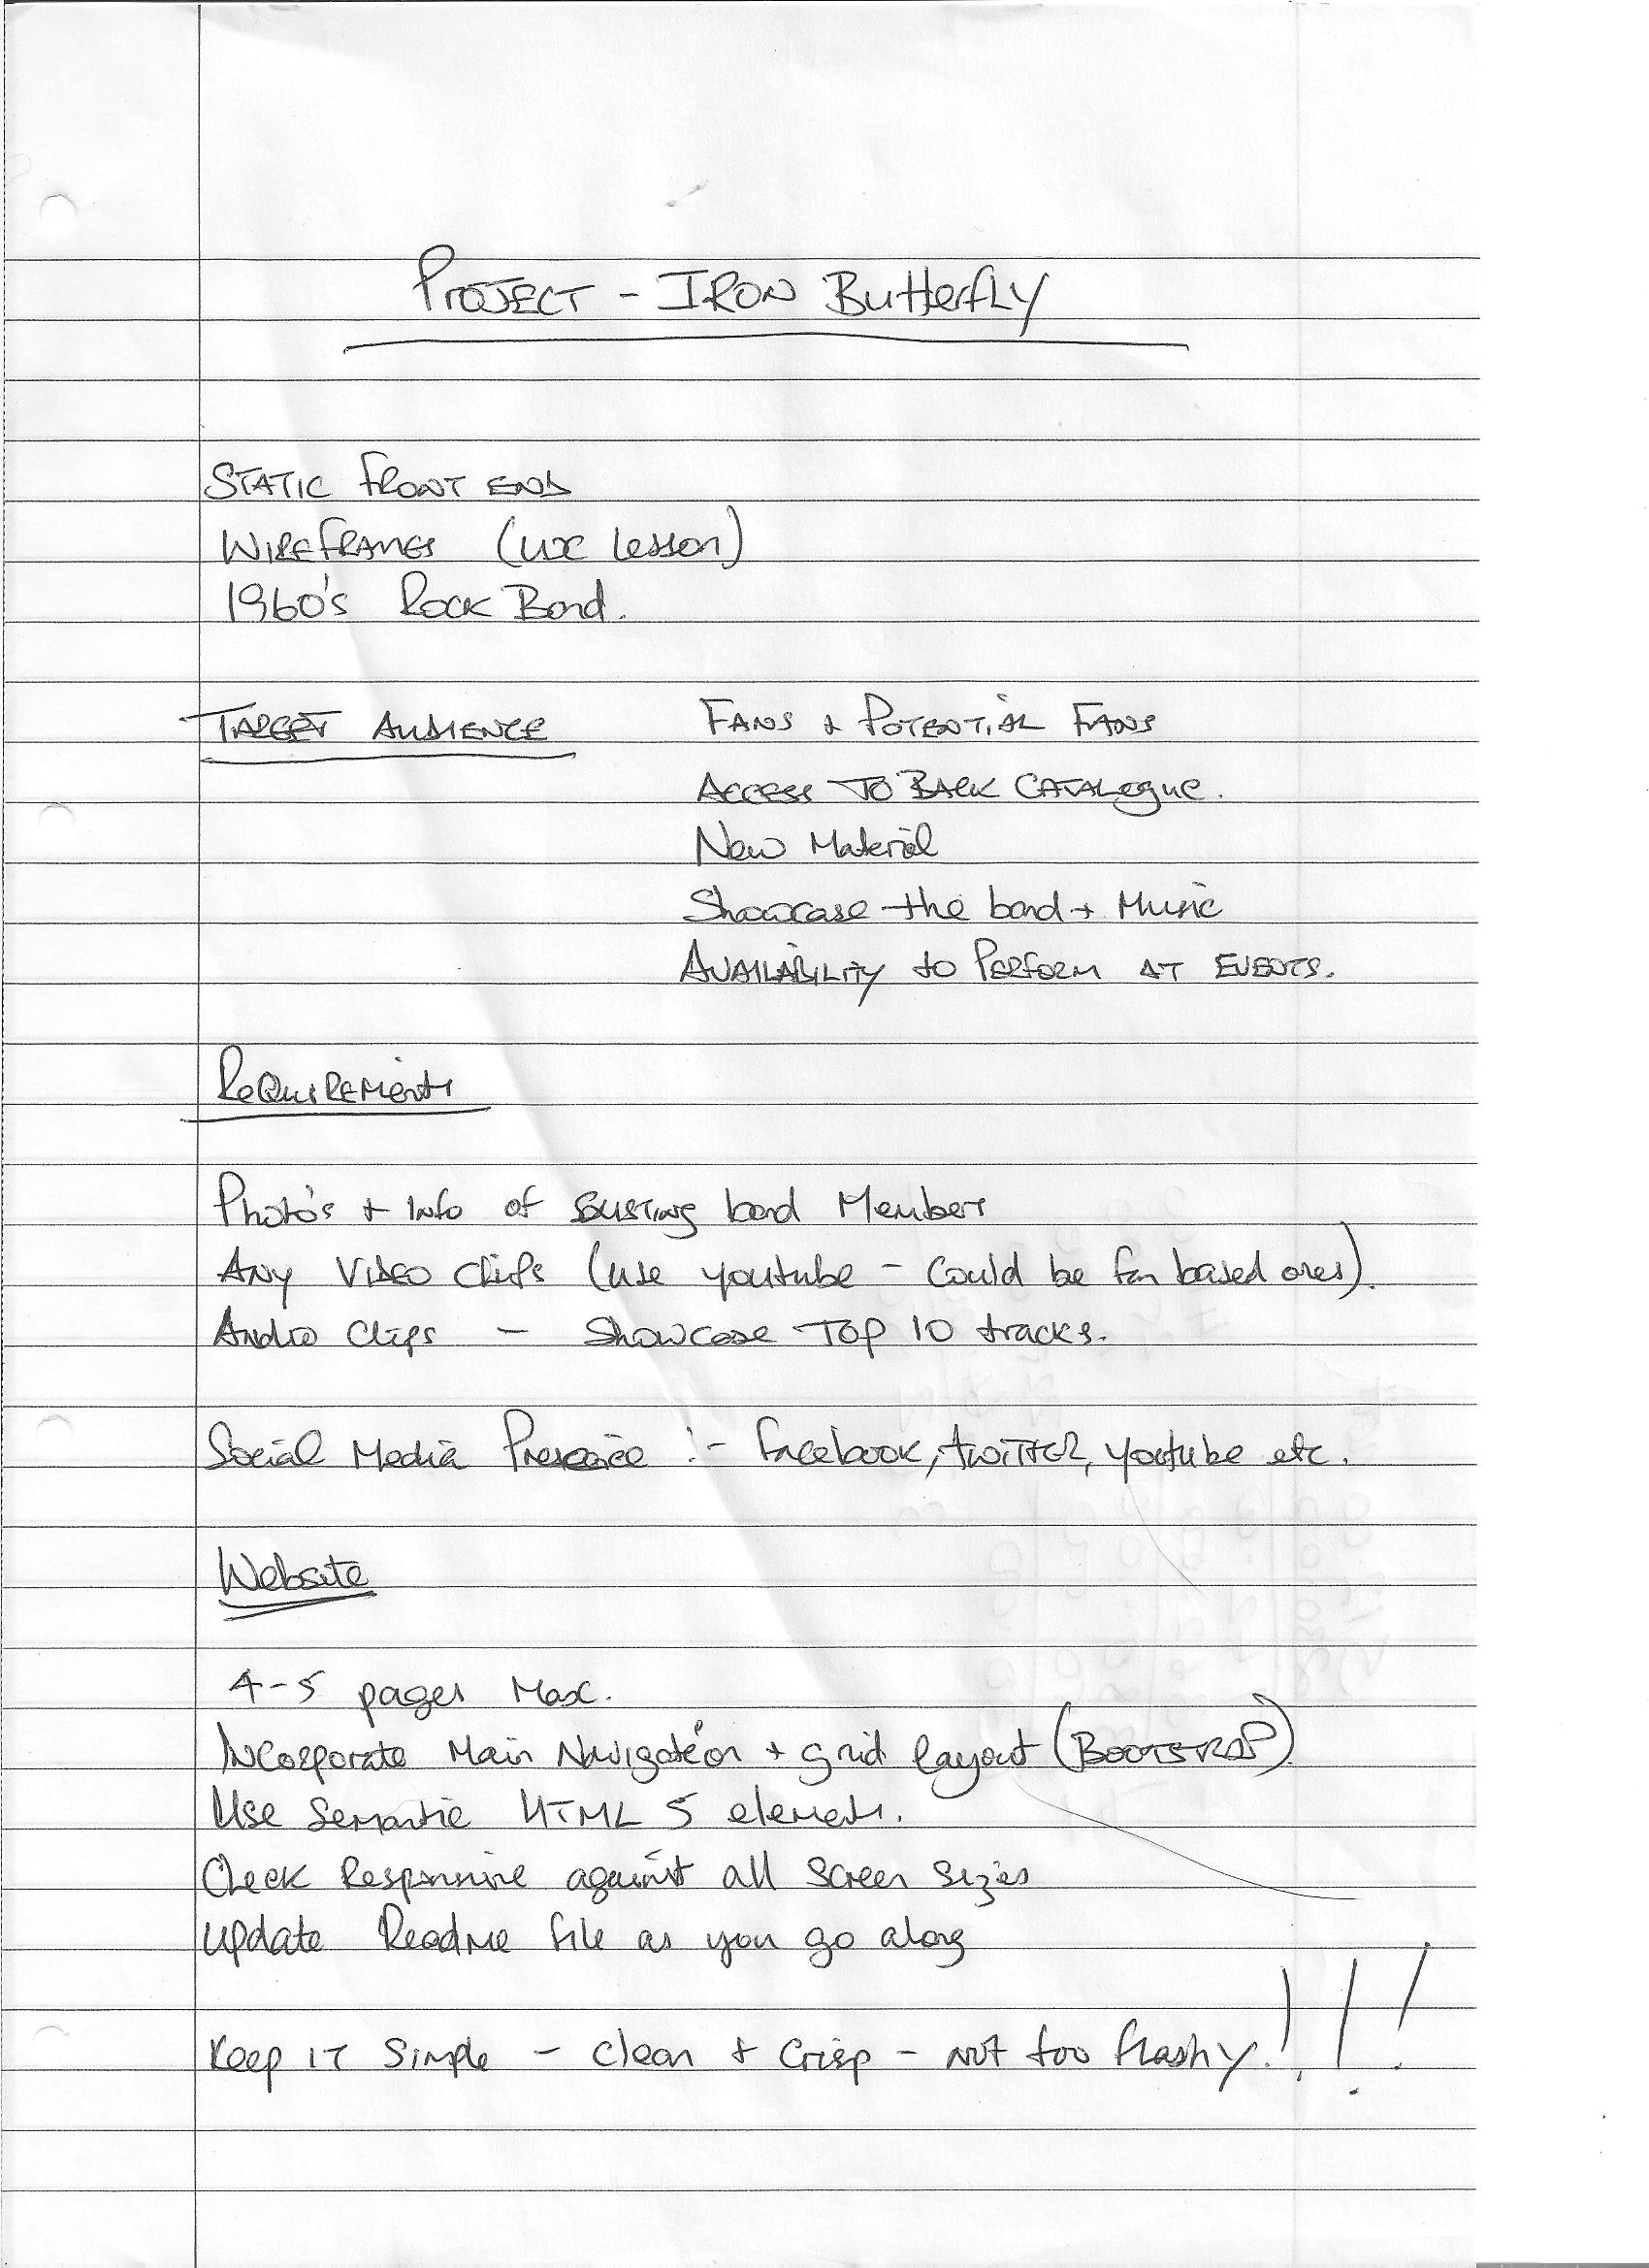 PROJECT - IRON Butterfly
STATIC FRONT END
WIREFRAMES (UX lesson)
1960's Rock Band.
TARGET AUDIENCE FANS + POTENTIAL FANS
ACCESS TO BACK CATALogue.
New Material
Showcase the band + Music
AVAILABILITY to PERFORM AT EVENTS.
ReQuIREMents
Photo's + Info of existing band Members
Any VIDEO clips (use youtube - Could be fan based ones).
Audio Clips - Showcase TOP 10 tracks.
Social Media Presence :- facebook, twitter, youtube etc.
Website
4-5 pages Max.
Incorporate Main Navigation + grid layout (BOOTSTRAP).
Use Semantic HTML 5 elements.
Check Responsive against all screen sizes
update ReadMe file as you go along
Keep IT Simple - clean + crisp - not too flashy!!!